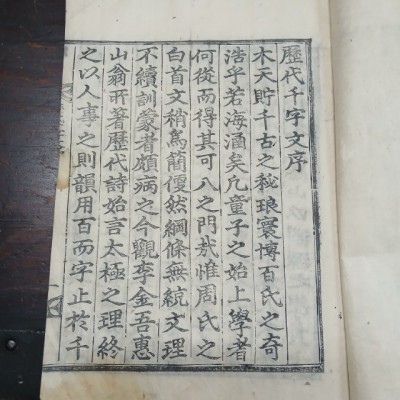 歷代千字文序
木天貯千古之秘琅寰博百氏之奇
浩乎若海涵矣凡童子之始上學者
何從而得其可入之門哉惟周氏之
白首文稍爲簡便然綱條無統文理
不續訓蒙者頗病之今觀李金吾惠
山翁所著歷代詩始言太極之理終
之以人事之則韻用百而字止於千